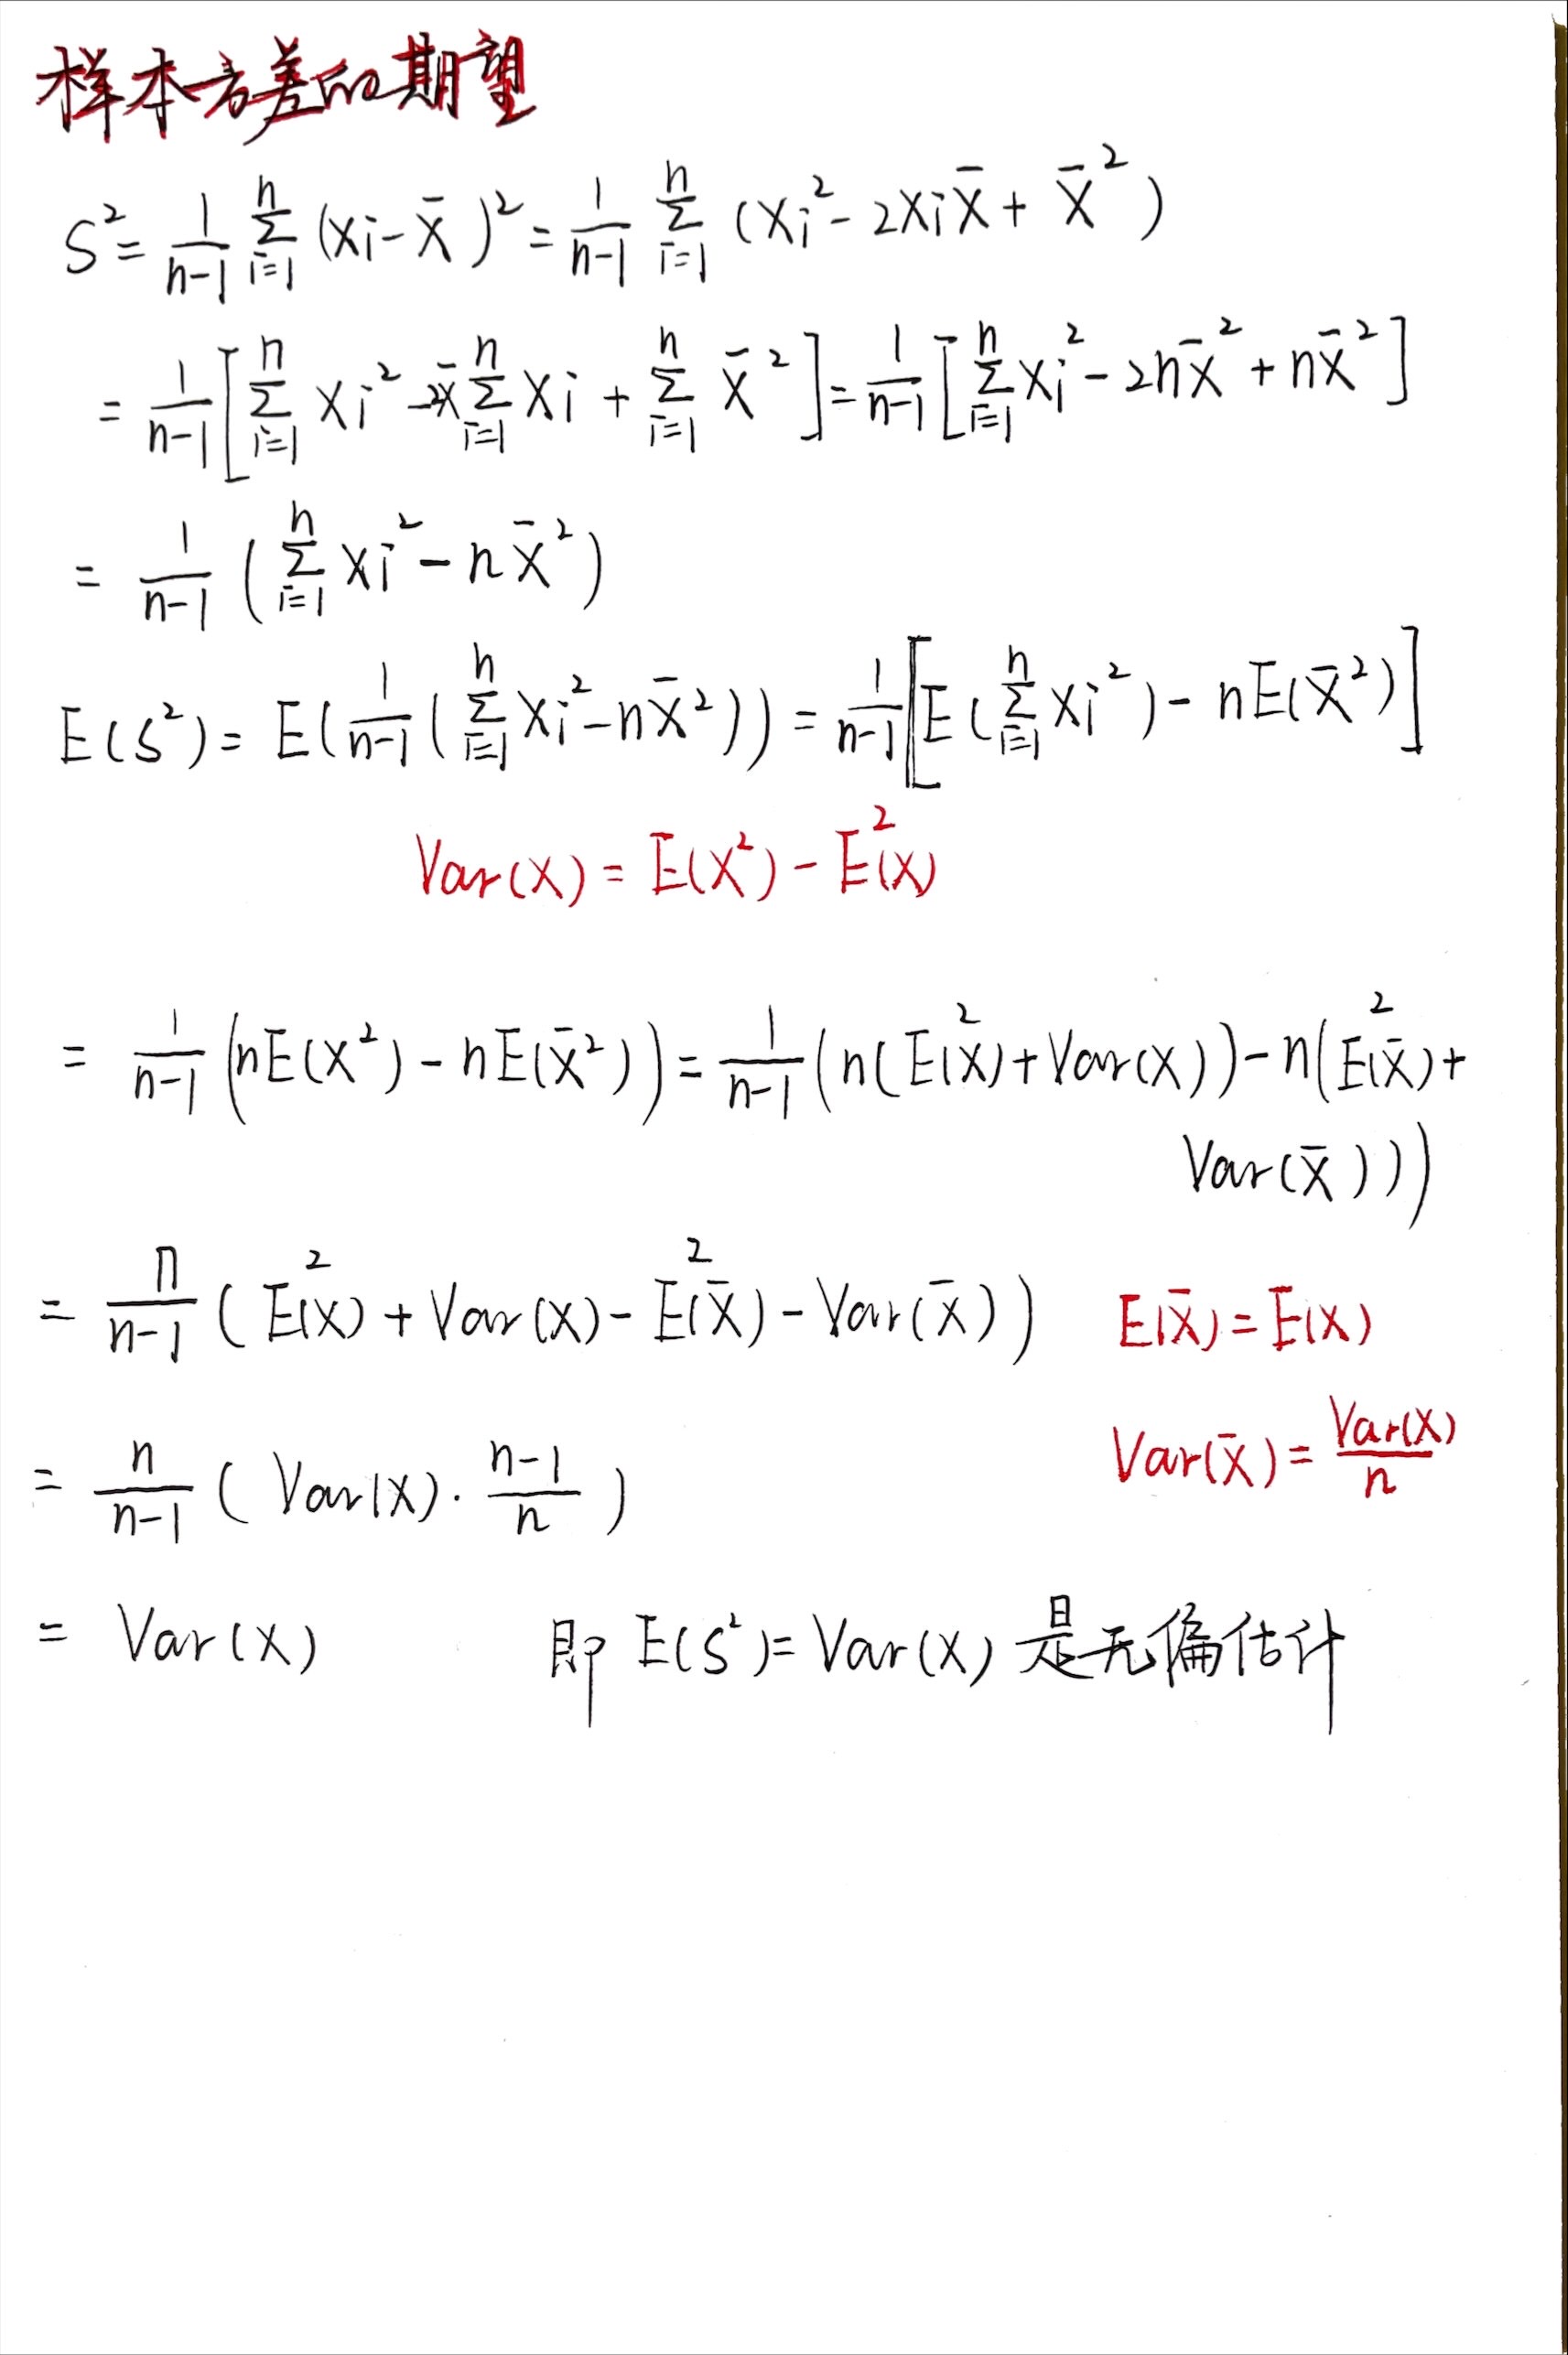 样本方差的期望
S² = \frac{1}{n-1} \sum_{i=1}^{n} (xi - \bar{x})² = \frac{1}{n-1} \sum_{i=1}^{n} (xi² - 2xi\bar{x} + \bar{x}²)
= \frac{1}{n-1} [\sum_{i=1}^{n} xi² - 2\bar{x} \sum_{i=1}^{n} xi + \sum_{i=1}^{n} \bar{x}²] = \frac{1}{n-1} [\sum_{i=1}^{n} xi² - 2n\bar{x}² + n\bar{x}²]
= \frac{1}{n-1} (\sum_{i=1}^{n} xi² - n\bar{x}²)
E(S²) = E(\frac{1}{n-1} (\sum_{i=1}^{n} xi² - n\bar{x}²)) = \frac{1}{n-1} [E(\sum_{i=1}^{n} xi²) - nE(\bar{x}²)]
Var(X) = E(X²) - E²(X)
= \frac{1}{n-1} (nE(X²) - nE(\bar{x}²)) = \frac{1}{n-1} (n(E²(X) + Var(X)) - n(E²(\bar{x}) +
Var(\bar{x})))
= \frac{n}{n-1} (E²(X) + Var(X) - E²(\bar{X}) - Var(\bar{X})) E(\bar{X}) = E(X)
= \frac{n}{n-1} (Var(X) · \frac{n-1}{n}) Var(\bar{x}) = \frac{Var(X)}{n}
= Var(X) 即 E(S²) = Var(X) 是无偏估计